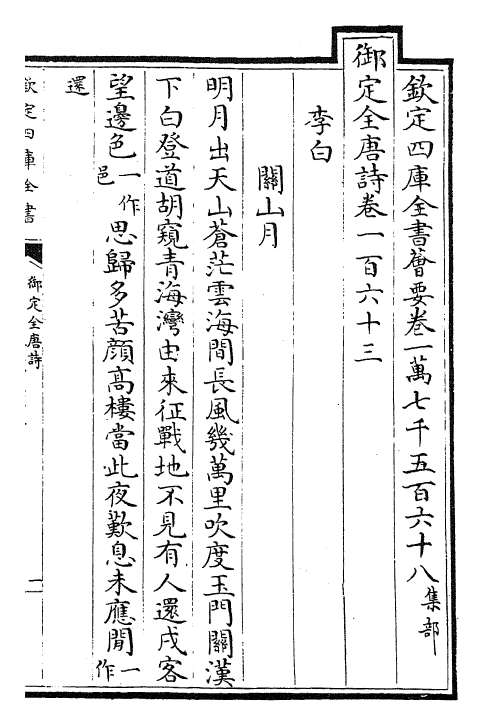 欽定四庫全書薈要卷一萬七千五百六十八集部
御定全唐詩卷一百六十三
李白
關山月
明月出天山蒼茫雲海間長風幾萬里吹度玉門關漢
下白登道胡窺青海灣由來征戰地不見有人還戍客
望邊色一作邑思歸多苦顏高樓當此夜歎息未應閒一作
還
欽定四庫全書
御定全唐詩
二